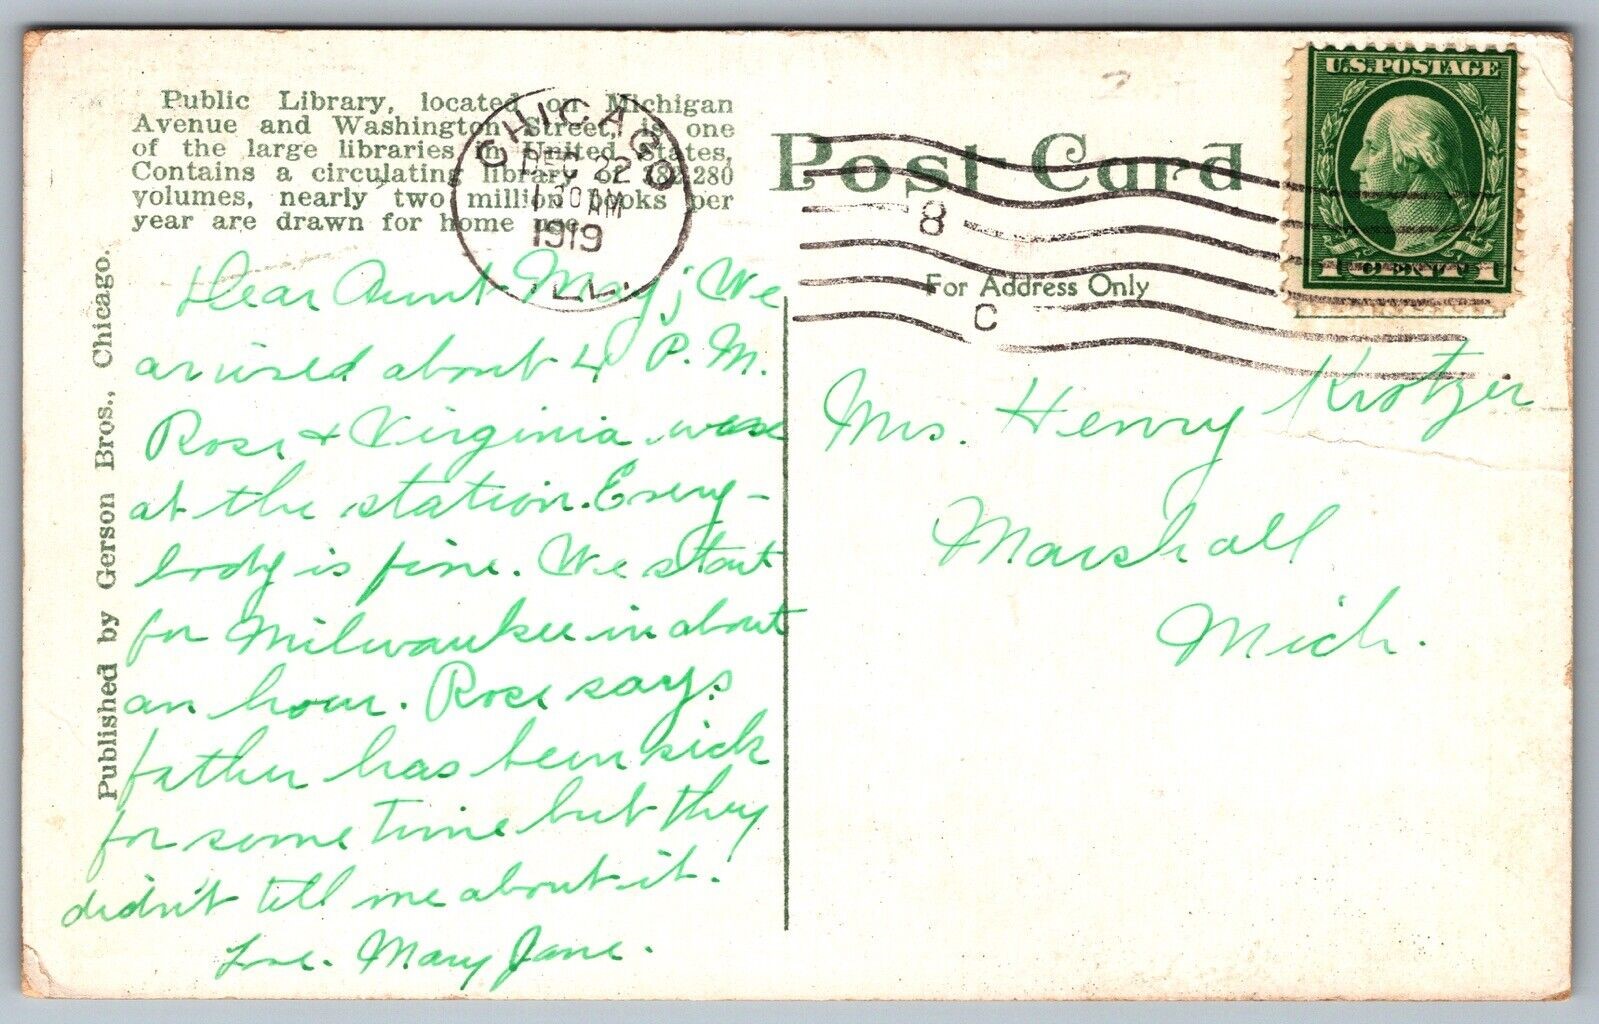 Public Library, located on Michigan
Avenue and Washington Street, is one
of the large libraries in United States.
Contains a circulating library of 782,280
volumes, nearly two million books per
year are drawn for home use.
CHICAGO
DEC 22
1 30 AM
1919
ILL.
Published by Gerson Bros., Chicago.
Dear Aunt May; We
arrived about 4 P.M.
Rose & Virginia were
at the station. Every-
body is fine. We start
for Milwaukee in about
an hour. Rose says
father has been sick
for some time but they
didn't tell me about it.
Love. Mary Jane.
Post Card
8
For Address Only
C
U.S.POSTAGE
1 CENT 1
Mrs. Henry Krotzer
Marshall
Mich.